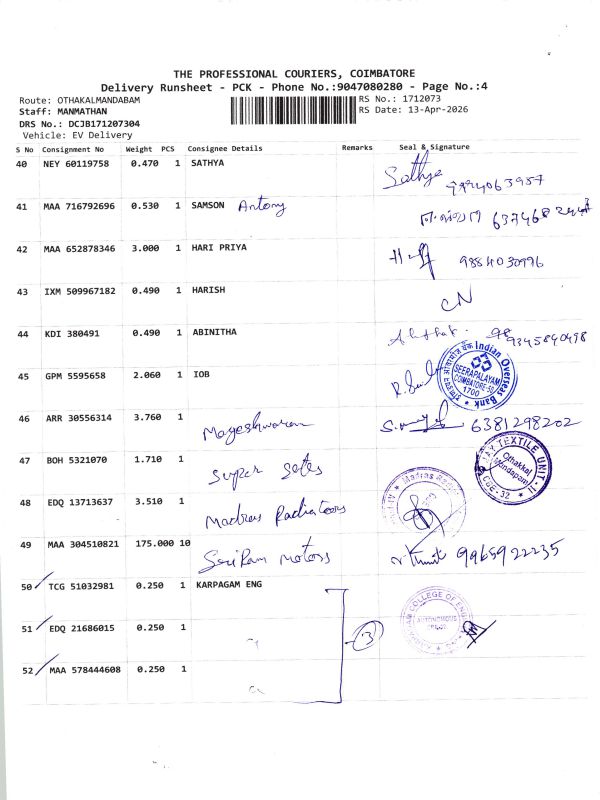 THE PROFESSIONAL COURIERS, COIMBATORE
Delivery Runsheet - PCK - Phone No.:9047080280 - Page No.:4
Route: OTHAKALMANDABAM RS No.: 1712073
Staff: MANMATHAN RS Date: 13-Apr-2026
DRS No.: DCJB171207304
Vehicle: EV Delivery
S No Consignment No Weight PCS Consignee Details Remarks Seal & Signature
40 NEY 60119758 0.470 1 SATHYA Sathya
41 MAA 716792696 0.530 1 SAMSON Antony
42 MAA 652878346 3.000 1 HARI PRIYA 9884030996
43 IXM 509967182 0.490 1 HARISH CN
44 KDI 380491 0.490 1 ABINITHA 9345840498
45 GPM 5595658 2.060 1 IOB
Indian Overseas Bank
SEERAPALAYAM
COIMBATORE-32
1700
46 ARR 30556314 3.760 1 Mageshwaran 6381298202
47 BOH 5321070 1.710 1 Super Sales
TEXTILE UNIT-II
Othakkal
Mandapam
CBE-32
48 EDQ 13713637 3.510 1 Madras Radiators
Madras
49 MAA 304510821 175.000 10 SriRam motors 9965922235
50 TCG 51032981 0.250 1 KARPAGAM ENG
COLLEGE OF
AUTONOMOUS
51 EDQ 21686015 0.250 1 3
52 MAA 578444608 0.250 1